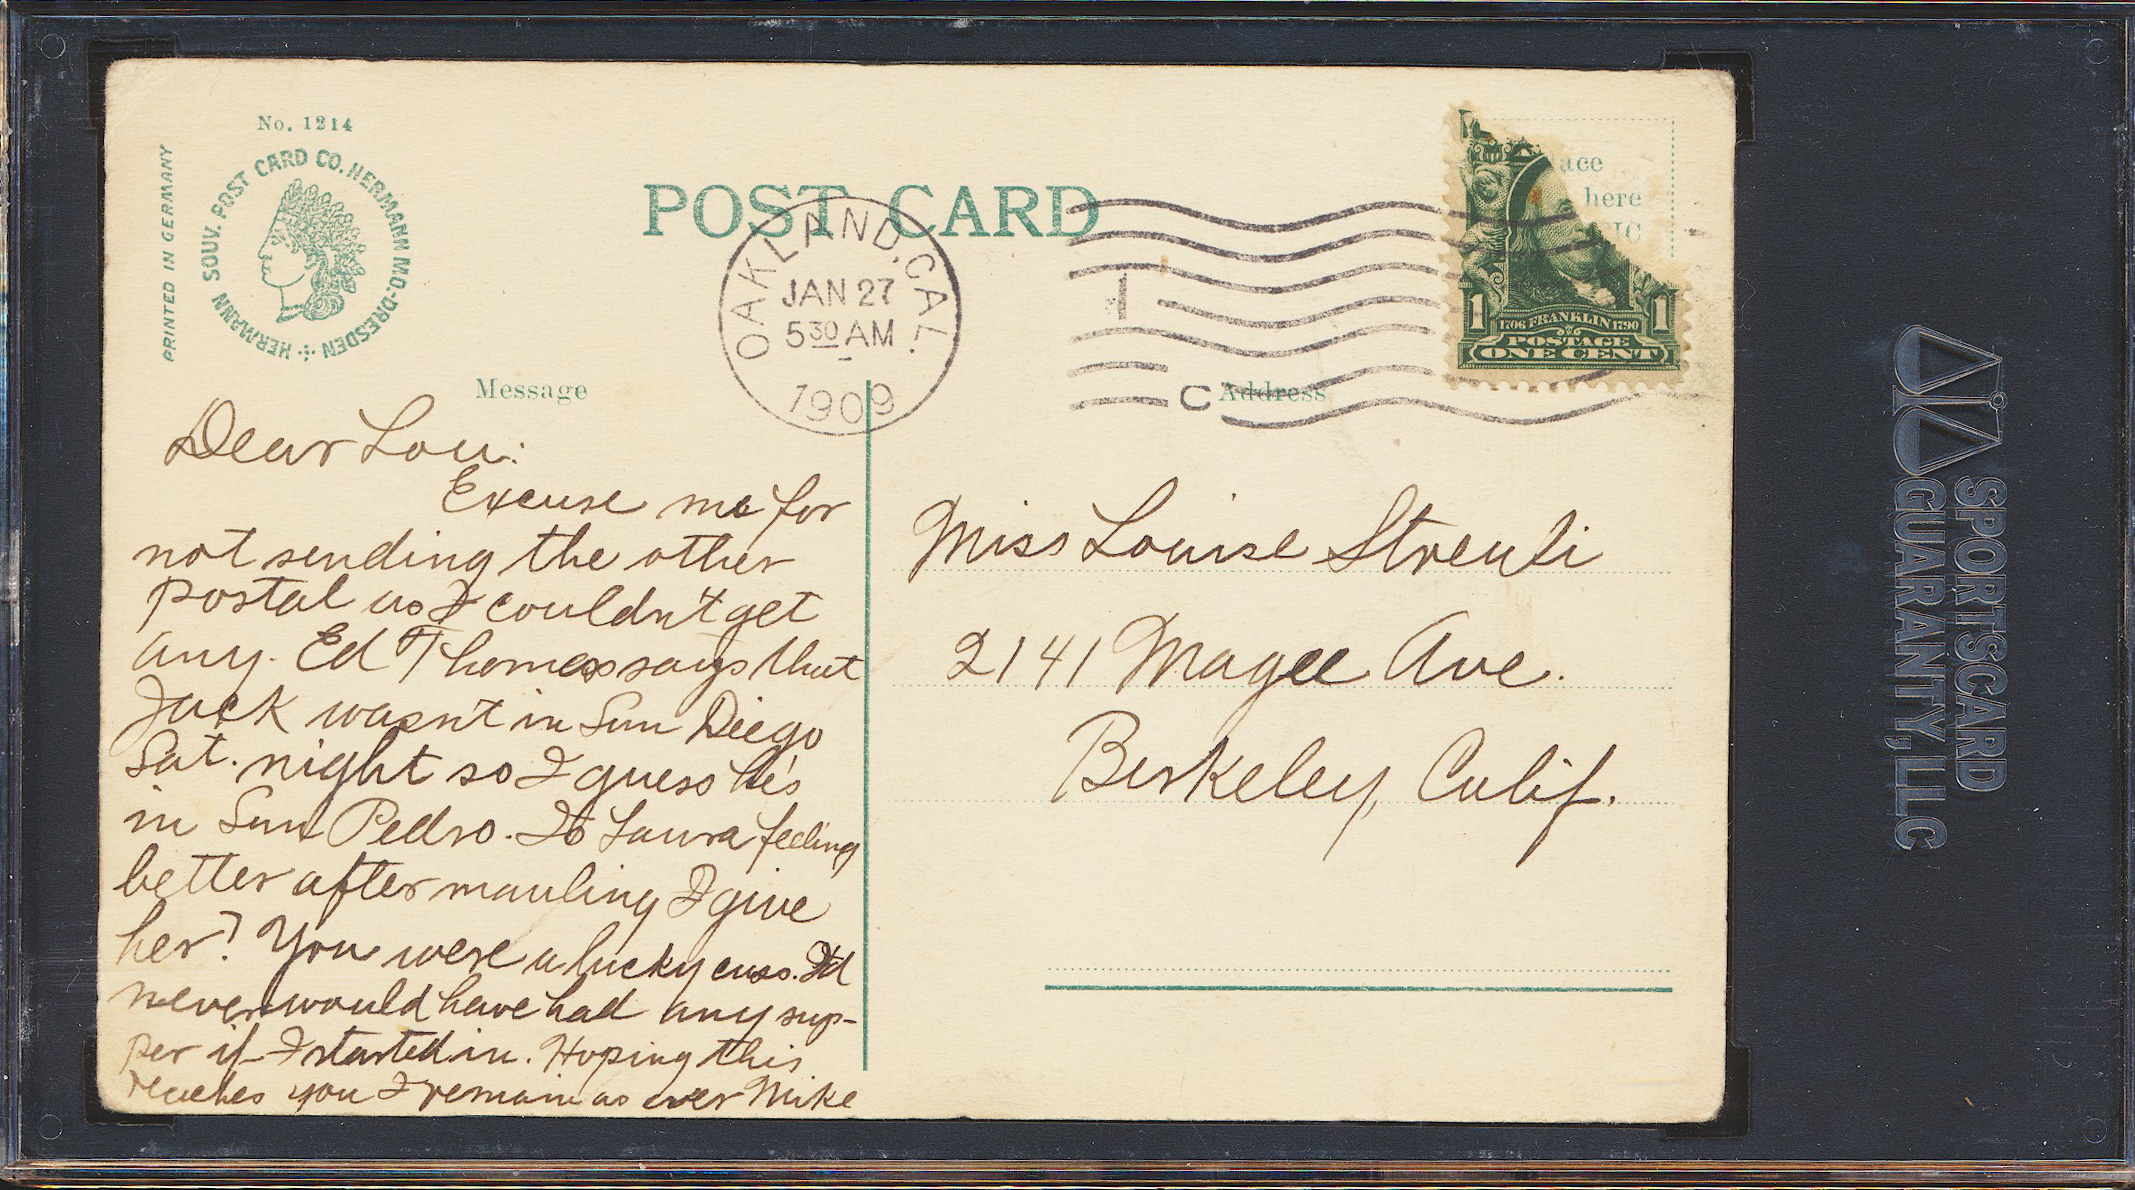 No. 1214
PRINTED IN GERMANY
HERMANN SOUV. POST CARD CO. HERMANN MO.-DRESDEN
POST CARD
OAKLAND, CAL.
JAN 27
5 30 AM
1909
1
C
ace
here
1 1
1706 FRANKLIN 1790
POSTAGE
ONE CENT
Message
Address
Dear Lou:
Excuse me for
not sending the other
postal as I couldn't get
any. Ed Thomas says that
Jack wasn't in San Diego
Sat. night so I guess he's
in San Pedro. Is Laura feeling
better after mauling I give
her? You were a lucky cuss. I'd
never would have had any sup-
per if I started in. Hoping this
reaches you I remain as ever Mike
Miss Louise Streuli
2141 Magee Ave.
Berkeley, Calif.
SPORTSCARD
GUARANTY, LLC